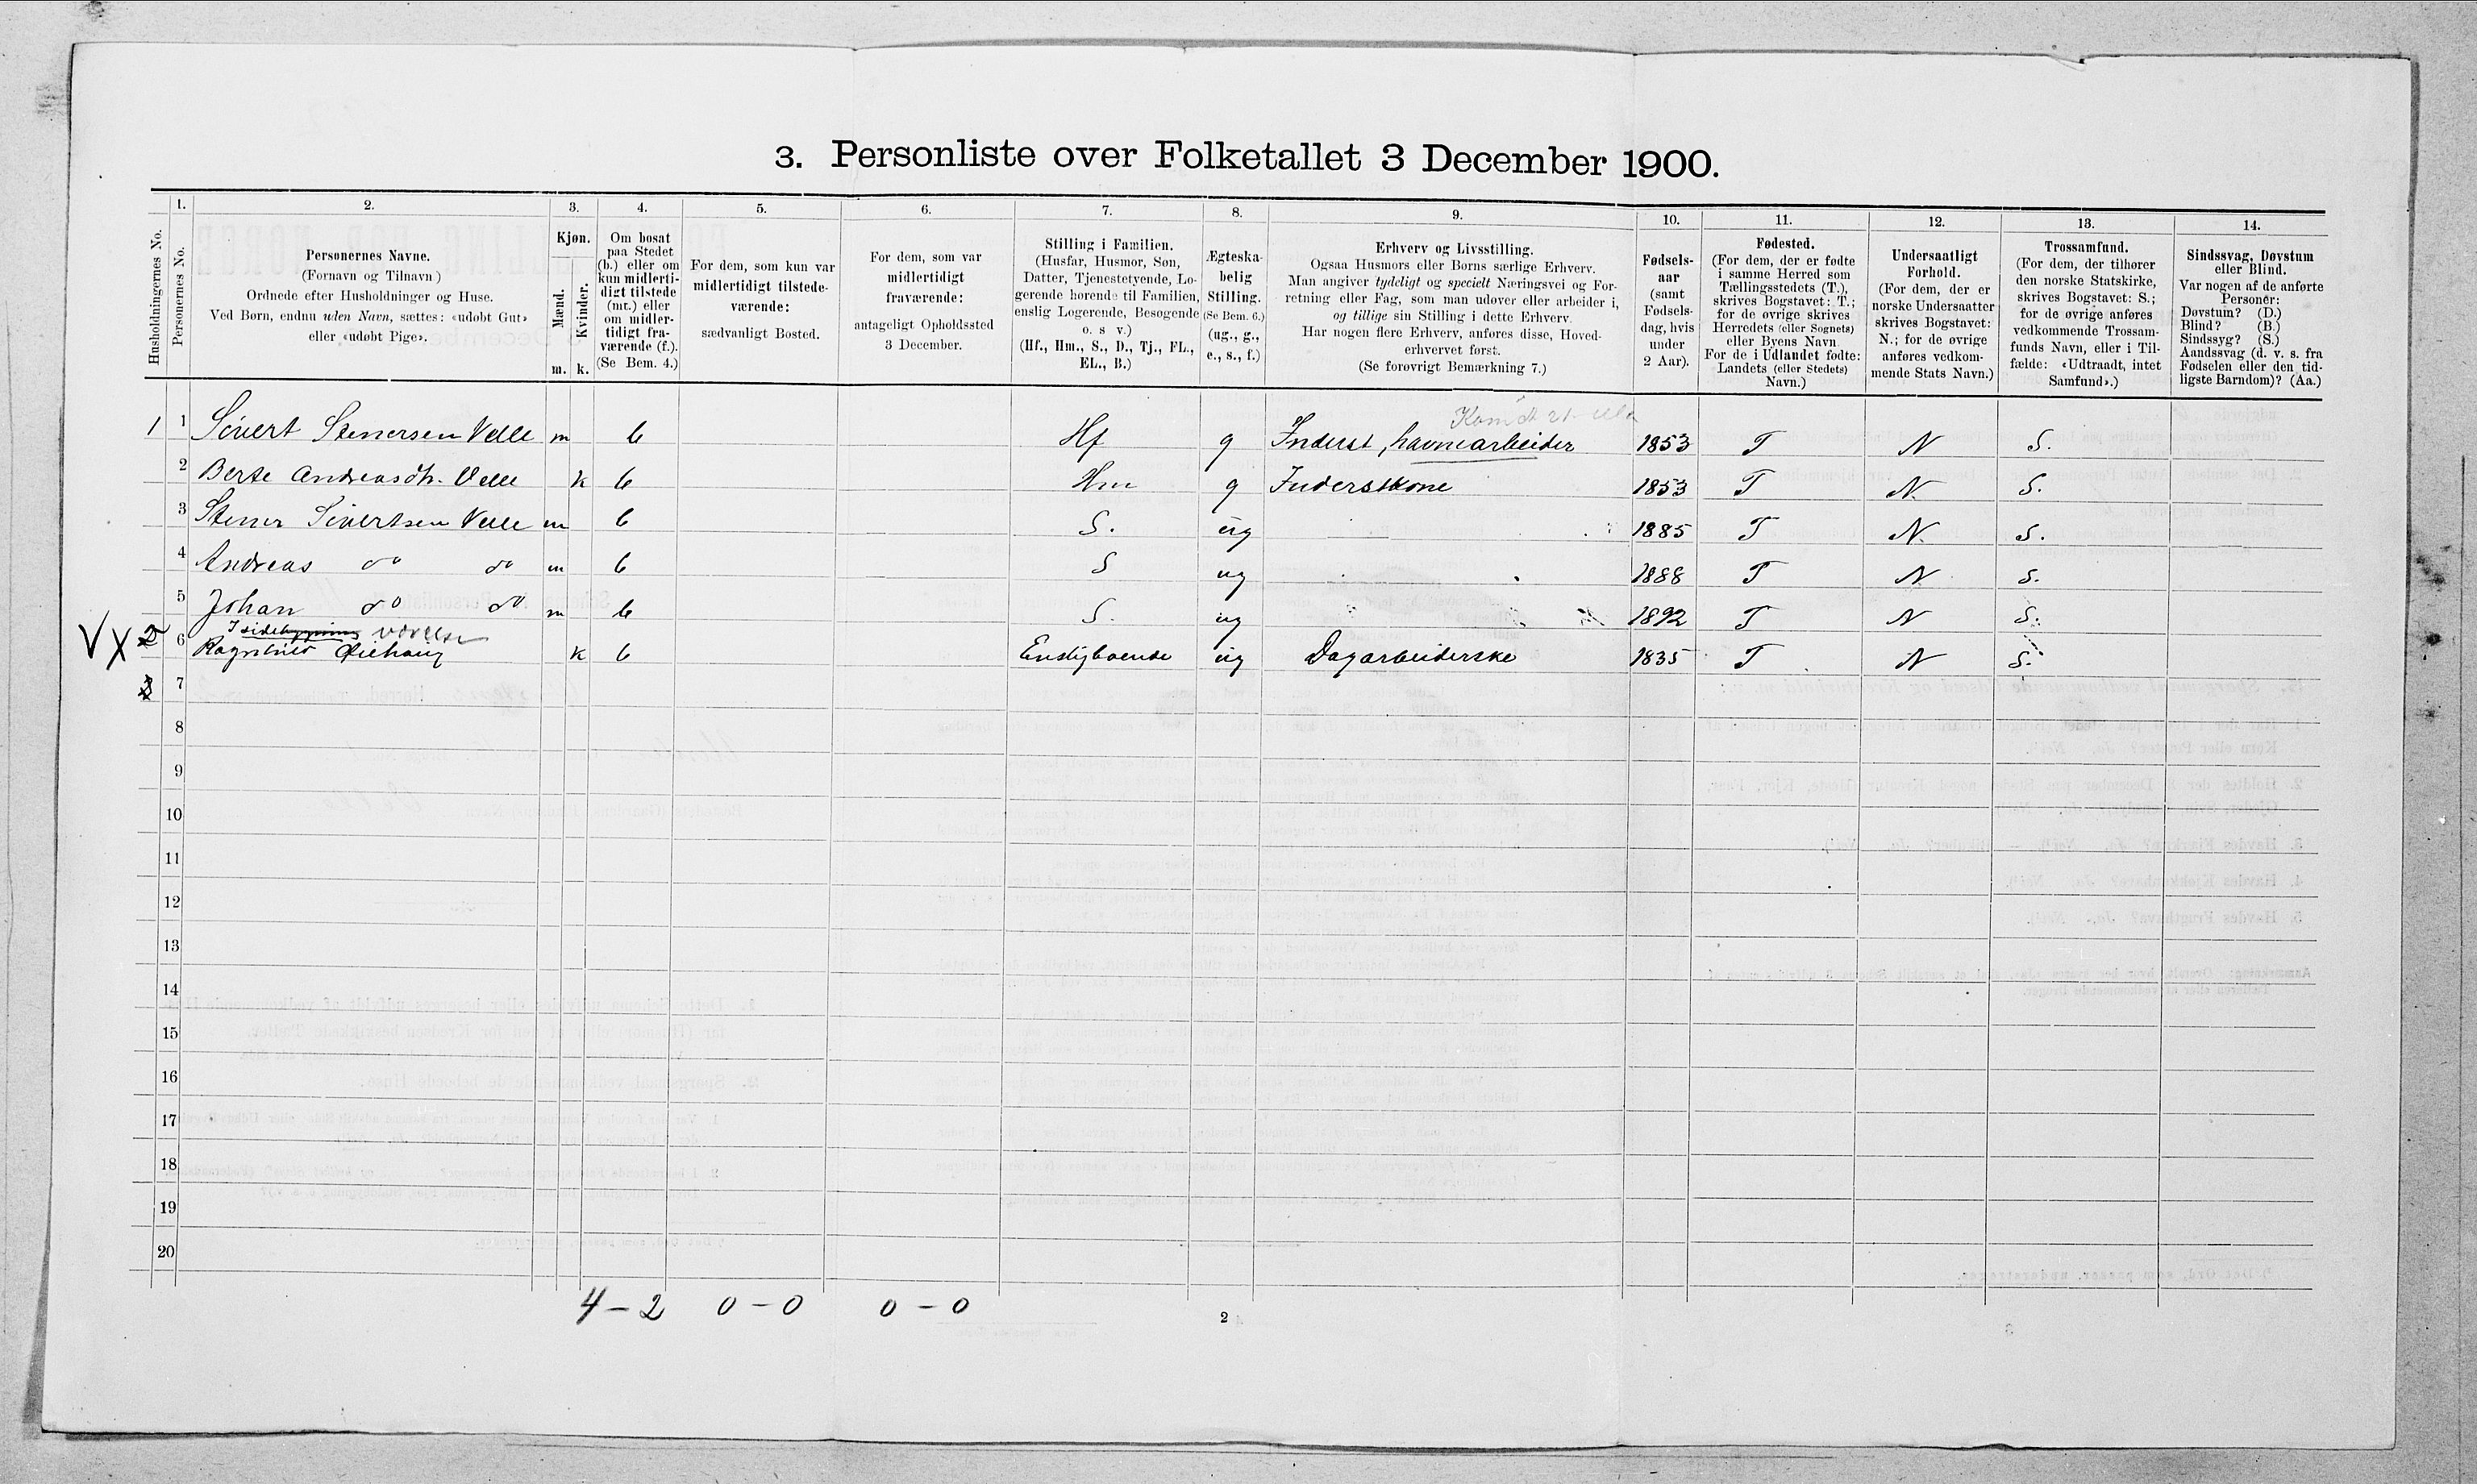 3. Personliste over Folketallet 3 December 1900.
Husholdningernes No.
1.
Personernes No.
2.
Personernes Navne.
(Fornavn og Tilnavn)
Ordnede efter Husholdninger og Huse.
Ved Børn, endnu uden Navn, sættes: «udøbt Gut»
eller «udøbt Pige».
3.
Kjøn.
Mænd.
Kvinder.
m. k.
4.
Om bosat
paa Stedet
(b.) eller om
kun midlerti-
digt tilstede
(mt.) eller
om midler-
tidigt fra-
værende (f.).
(Se Bem. 4.)
5.
For dem, som kun var
midlertidigt tilstede-
værende:
sædvanligt Bosted.
6.
For dem, som var
midlertidigt
fraværende:
antageligt Opholdssted
3 December.
7.
Stilling i Familien.
(Husfar, Husmor, Søn,
Datter, Tjenestetyende, Lo-
gerende hørende til Familien,
enslig Logerende, Besøgende
o. s v.)
(Hf., Hm., S., D., Tj., FL.,
EL., B.)
8.
Ægteska-
belig
Stilling.
(Se Bem. 6.)
(ug., g.,
e., s., f.)
9.
Erhverv og Livsstilling.
Ogsaa Husmors eller Børns særlige Erhverv.
Man angiver tydeligt og specielt Næringsvei og For-
retning eller Fag, som man udøver eller arbeider i,
og tillige sin Stilling i dette Erhverv.
Har nogen flere Erhverv, anføres disse, Hoved-
erhvervet først.
(Se forøvrigt Bemærkning 7.)
10.
Fødsels-
aar
(samt
Fødsels-
dag, hvis
under
2 Aar).
11.
Fødested.
(For dem, der er fødte
i samme Herred som
Tællingsstedets (T.),
skrives Bogstavet: T.;
for de øvrige skrives
Herredets (eller Sognets)
eller Byens Navn
For de i Udlandet fødte:
Landets (eller Stedets)
Navn.)
12.
Undersaatligt
Forhold.
(For dem, der er
norske Undersaatter
skrives Bogstavet:
N.; for de øvrige
anføres vedkom-
mende Stats Navn.)
13.
Trossamfund.
(For dem, der tilhører
den norske Statskirke,
skrives Bogstavet: S.;
for de øvrige anføres
vedkommende Trossam-
funds Navn, eller i Til-
fælde: «Udtraadt, intet
Samfund».)
14.
Sindssvag, Døvstum
eller Blind.
Var nogen af de anførte
Personer:
Døvstum? (D.)
Blind? (B.)
Sindssyg? (S.)
Aandssvag (d. v. s. fra
Fødselen eller den tid-
ligste Barndom)? (Aa.)
1 1 Sivert Stenersen Velle m b Hf g Inderst, havnearbeider 1853 T N S.
2 Berte Andreasdt. Velle k b Hm g Inderstkone 1853 T N. S.
3 Stener Sivertsen Velle m b S. ug 1885 T N. S.
4 Andreas do do m b S ug 1888 T N S.
5 Johan do do m b S. ug 1892 T N S.
I sidebygning værelse
V X 2 6 Ragnhild k b Enslig boende ug Dagarbeiderske 1835 T N S.
3 7
8
9
10
11
12
13
14
15
16
17
18
19
20
4 – 2 0 – 0 0 – 0
2